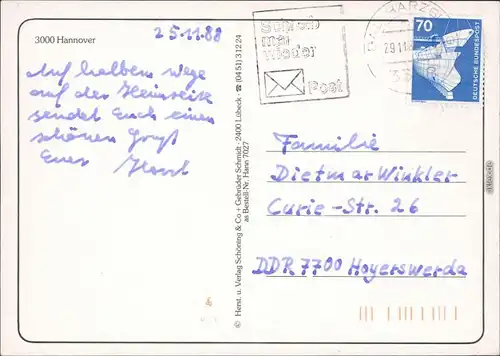 3000 Hannover
25.11.88
Auf halbem Wege
auf der Heimreise
sendet Euch einen
schönen Gruß
Euer Horst
© Herst. u. Verlag Schöning & Co + Gebrüder Schmidt · 2400 Lübeck · ☎ (04 51) 3 12 24
as Bestell-Nr. Hann 7027
Schreib
mal
wieder
Post
HARZ
29.11.
70
DEUTSCHE BUNDESPOST
Familie
Dietmar Winkler
Curie-Str. 26
DDR 7700 Hoyerswerda